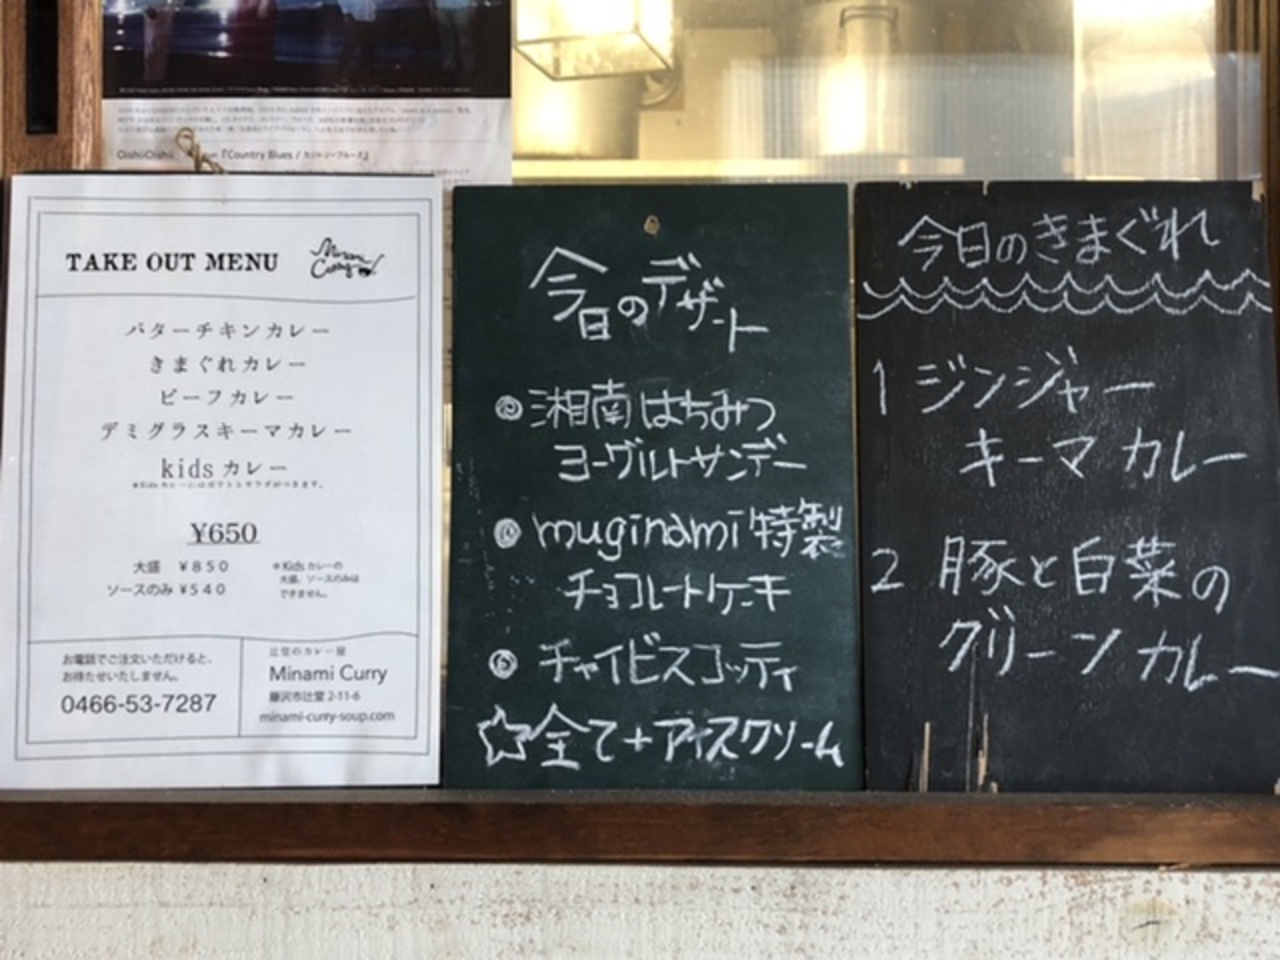 OishiiOishii
『Country Blues / カントリーブルース』
TAKE OUT MENU
Minami Curry
バターチキンカレー
きまぐれカレー
ビーフカレー
デミグラスキーマカレー
kids カレー
¥650
大盛 ¥850
ソースのみ ¥540
※Kids カレーの
大盛、ソースのみは
できません。
お電話でご注文いただけると、
お待たせいたしません。
0466-53-7287
辻堂のカレー屋
Minami Curry
藤沢市辻堂 2-11-6
minami-curry-soup.com
今日のデザート
◎湘南はちみつ
ヨーグルトサンデー
◎muginami特製
チョコレートケーキ
◎チャイビスコッティ
☆全て+アイスクリーム
今日のきまぐれ
1 ジンジャー
キーマカレー
2 豚と白菜の
グリーンカレー